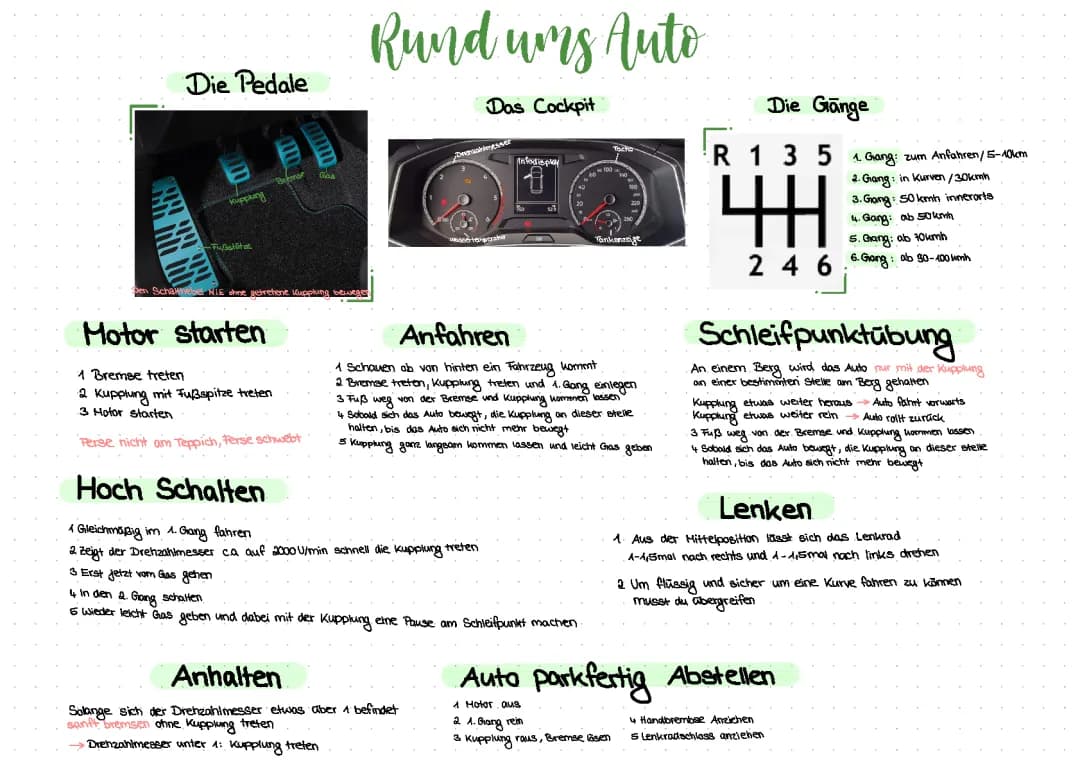 Rund ums Auto
Die Pedale
Kupplung
Bremse
Gas
Fußstütze
Den Schalthebel NIE ohne getretene Kupplung bewegen
Das Cockpit
Drehzahlmesser
Infodisplay
Tacho
Tankanzeige
Die Gänge
R 1 3 5
2 4 6
1. Gang: zum Anfahren/5-10km
2. Gang: in Kurven/30kmh
3. Gang: 50kmh innerorts
4. Gang: ab 50kmh
5. Gang: ab 70kmh
6. Gang: ab 90-100kmh
Motor starten
1 Bremse treten
2 Kupplung mit Fußspitze treten
3 Motor starten
Ferse nicht am Teppich, Ferse schwebt
Anfahren
1 Schauen ob von hinten ein Fahrzeug kommt
2 Bremse treten, Kupplung treten und 1. Gang einlegen
3 Fuß weg von der Bremse und Kupplung kommen lassen
4 Sobald sich das Auto bewegt, die Kupplung an dieser stelle
halten, bis das Auto sich nicht mehr bewegt
5 Kupplung ganz langsam kommen lassen und leicht Gas geben
Schleifpunktübung
An einem Berg wird das Auto nur mit der Kupplung
an einer bestimmten Stelle am Berg gehalten
Kupplung etwas weiter heraus → Auto fährt vorwärts
Kupplung etwas weiter rein → Auto rollt zurück
3 Fuß weg von der Bremse und Kupplung kommen lassen
4 Sobald sich das Auto bewegt, die Kupplung an dieser stelle
halten, bis das Auto sich nicht mehr bewegt
Hoch Schalten
1 Gleichmäßig im 1. Gang fahren
2 Zeigt der Drehzahlmesser c.a. auf 2000 U/min schnell die Kupplung treten
3 Erst jetzt vom Gas gehen
4 In den 2. Gang schalten
5 Wieder leicht Gas geben und dabei mit der Kupplung eine Pause am Schleifpunkt machen
Lenken
1. Aus der Mittelposition lässt sich das Lenkrad
1-1,5mal nach rechts und 1-1,5mal nach links drehen
2 Um flüssig und sicher um eine Kurve fahren zu können
musst du übergreifen
Anhalten
Solange sich der Drehzahlmesser etwas über 1 befindet
sanft bremsen ohne Kupplung treten
→ Drehzahlmesser unter 1: Kupplung treten
Auto parkfertig Abstellen
1 Motor aus
2 1. Gang rein
3 Kupplung raus, Bremse lösen
4 Handbremse Anziehen
5 Lenkradschloss anziehen